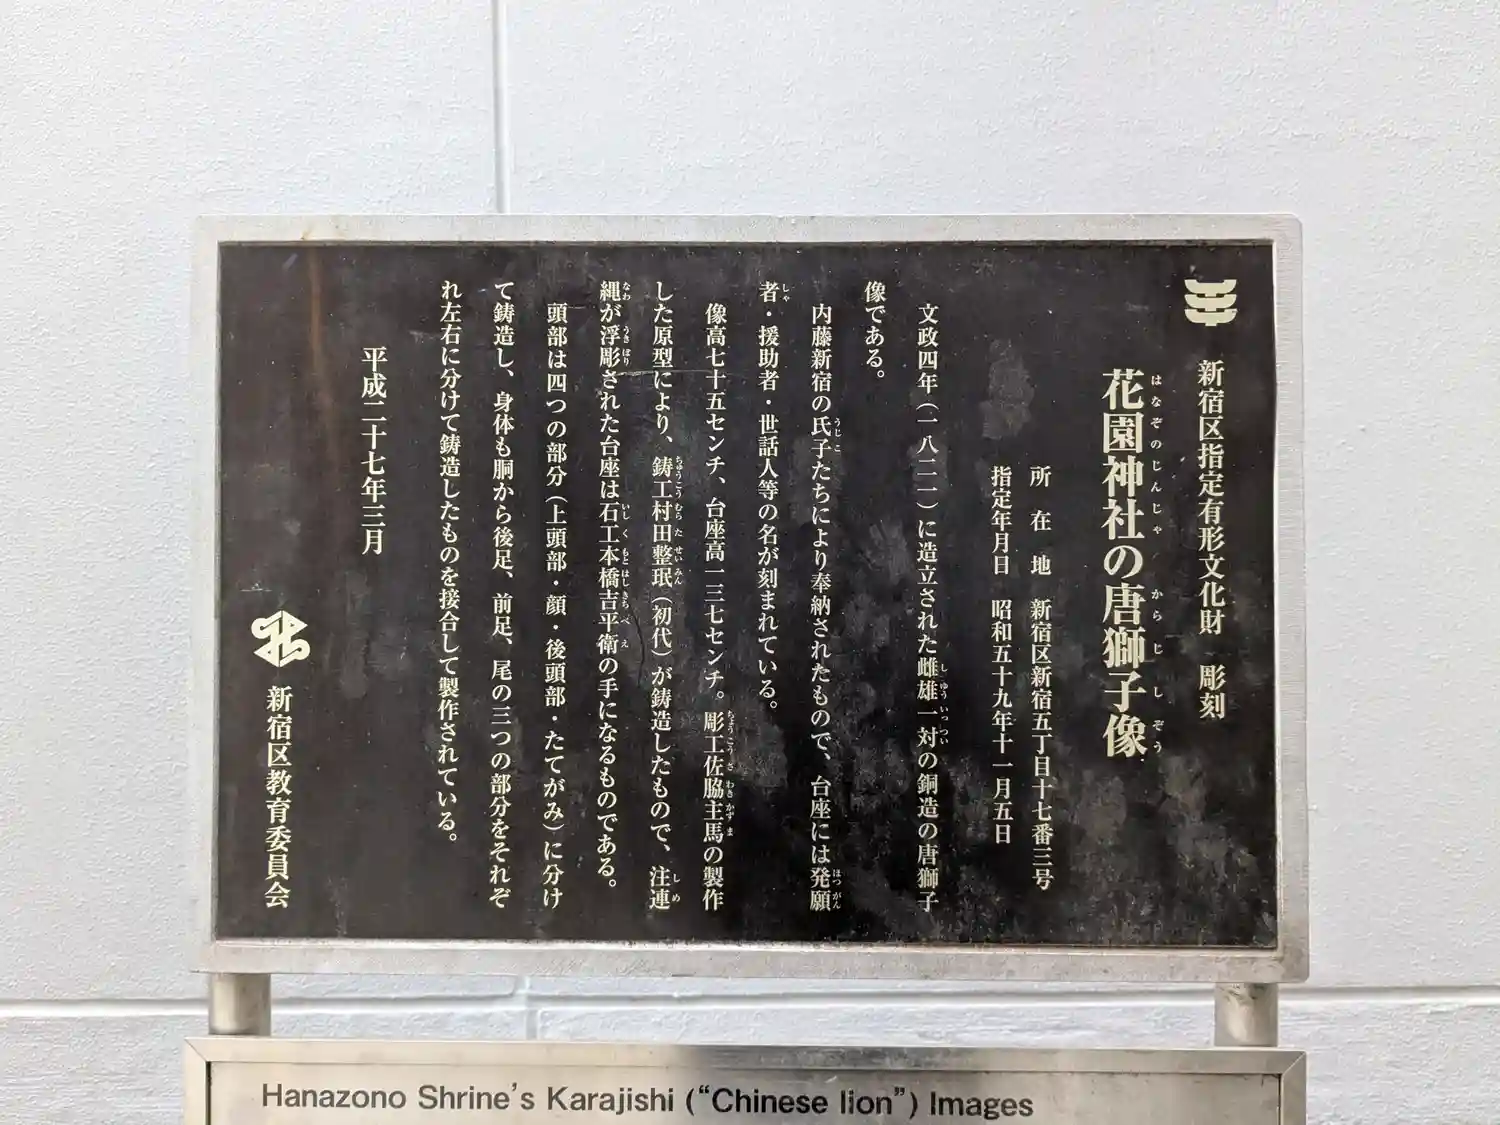 新宿区指定有形文化財　彫刻
はなぞのじんじゃ　からじしぞう
花園神社の唐獅子像
所在地　新宿区新宿五丁目十七番三号
指定年月日　昭和五十九年十一月五日
文政四年（一八二一）に造立された雌雄一対の銅造の唐獅子
しゆういっつい
像である。
内藤新宿の氏子たちにより奉納されたもので、台座には発願
うじこ　ほつがん
者・援助者・世話人等の名が刻まれている。
しゃ
像高七十五センチ、台座高一三七センチ。彫工佐脇主馬の製作
ちょうこうさわきかずま
した原型により、鋳工村田整珉（初代）が鋳造したもので、注連
ちゅうこうむらたせいみん　しめ
縄が浮彫された台座は石工本橋吉平衛の手になるものである。
なわ　うきぼり　いしくもとはしきちべえ
頭部は四つの部分（上頭部・顔・後頭部・たてがみ）に分け
て鋳造し、身体も胴から後足、前足、尾の三つの部分をそれぞ
れ左右に分けて鋳造したものを接合して製作されている。
平成二十七年三月
新宿区教育委員会
Hanazono Shrine's Karajishi (“Chinese lion”) Images